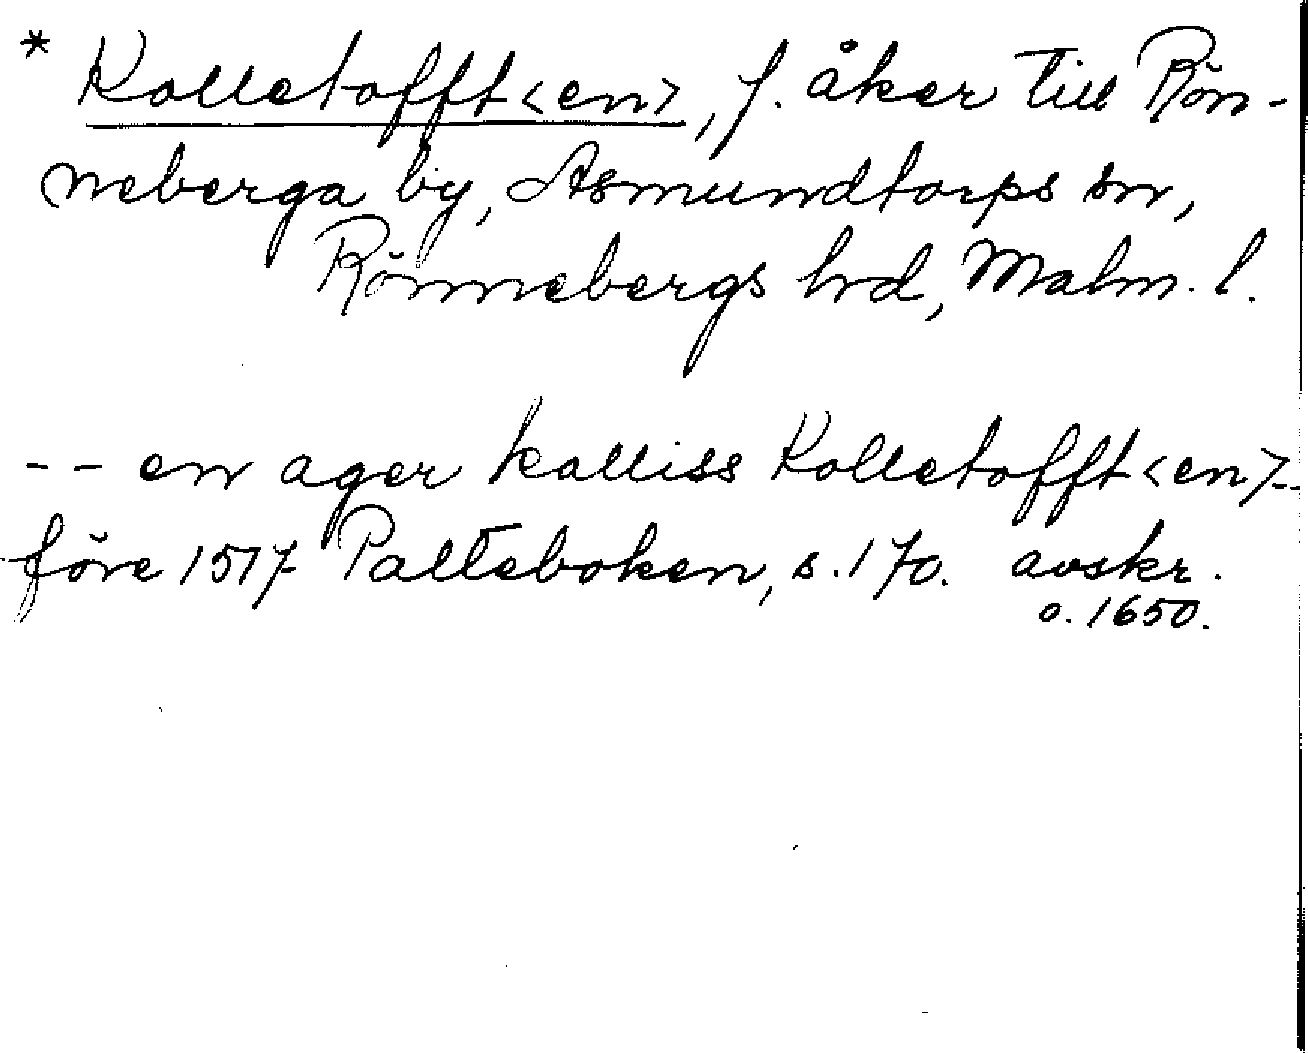 * Kolletofft<en>, f. åker till Rön-
neberga by, Asmundtorps sn,
Rönnebergs hd, Malm. l.
-- en ager kalliss Kolletofft<en>--
före 1517 Palteboken, s. 170. avskr.
o. 1650.